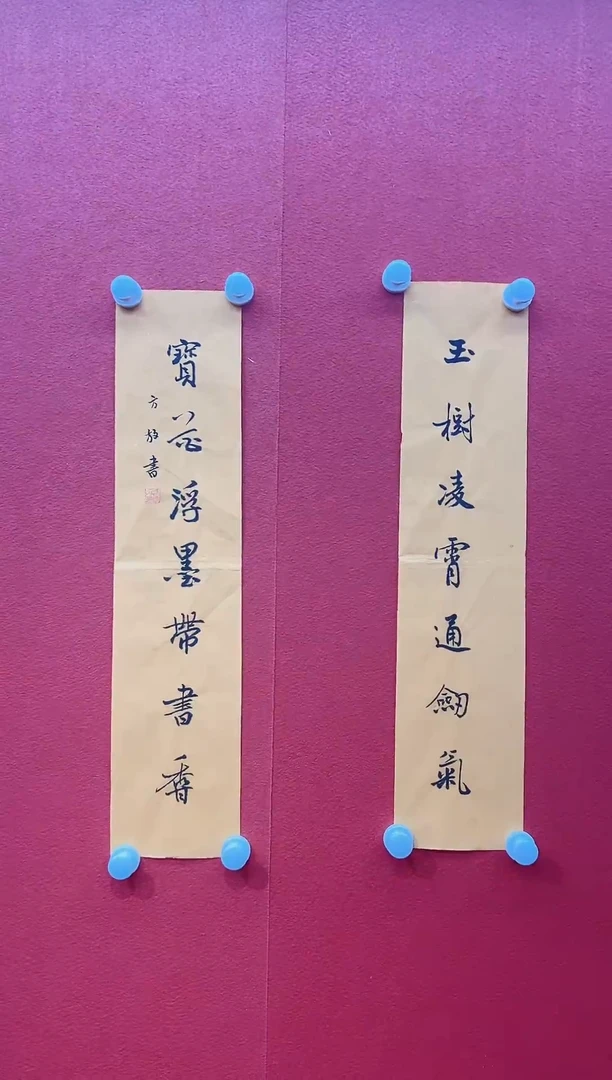 玉樹凌霄通劍氣
寶花浮墨帶書香
方 書